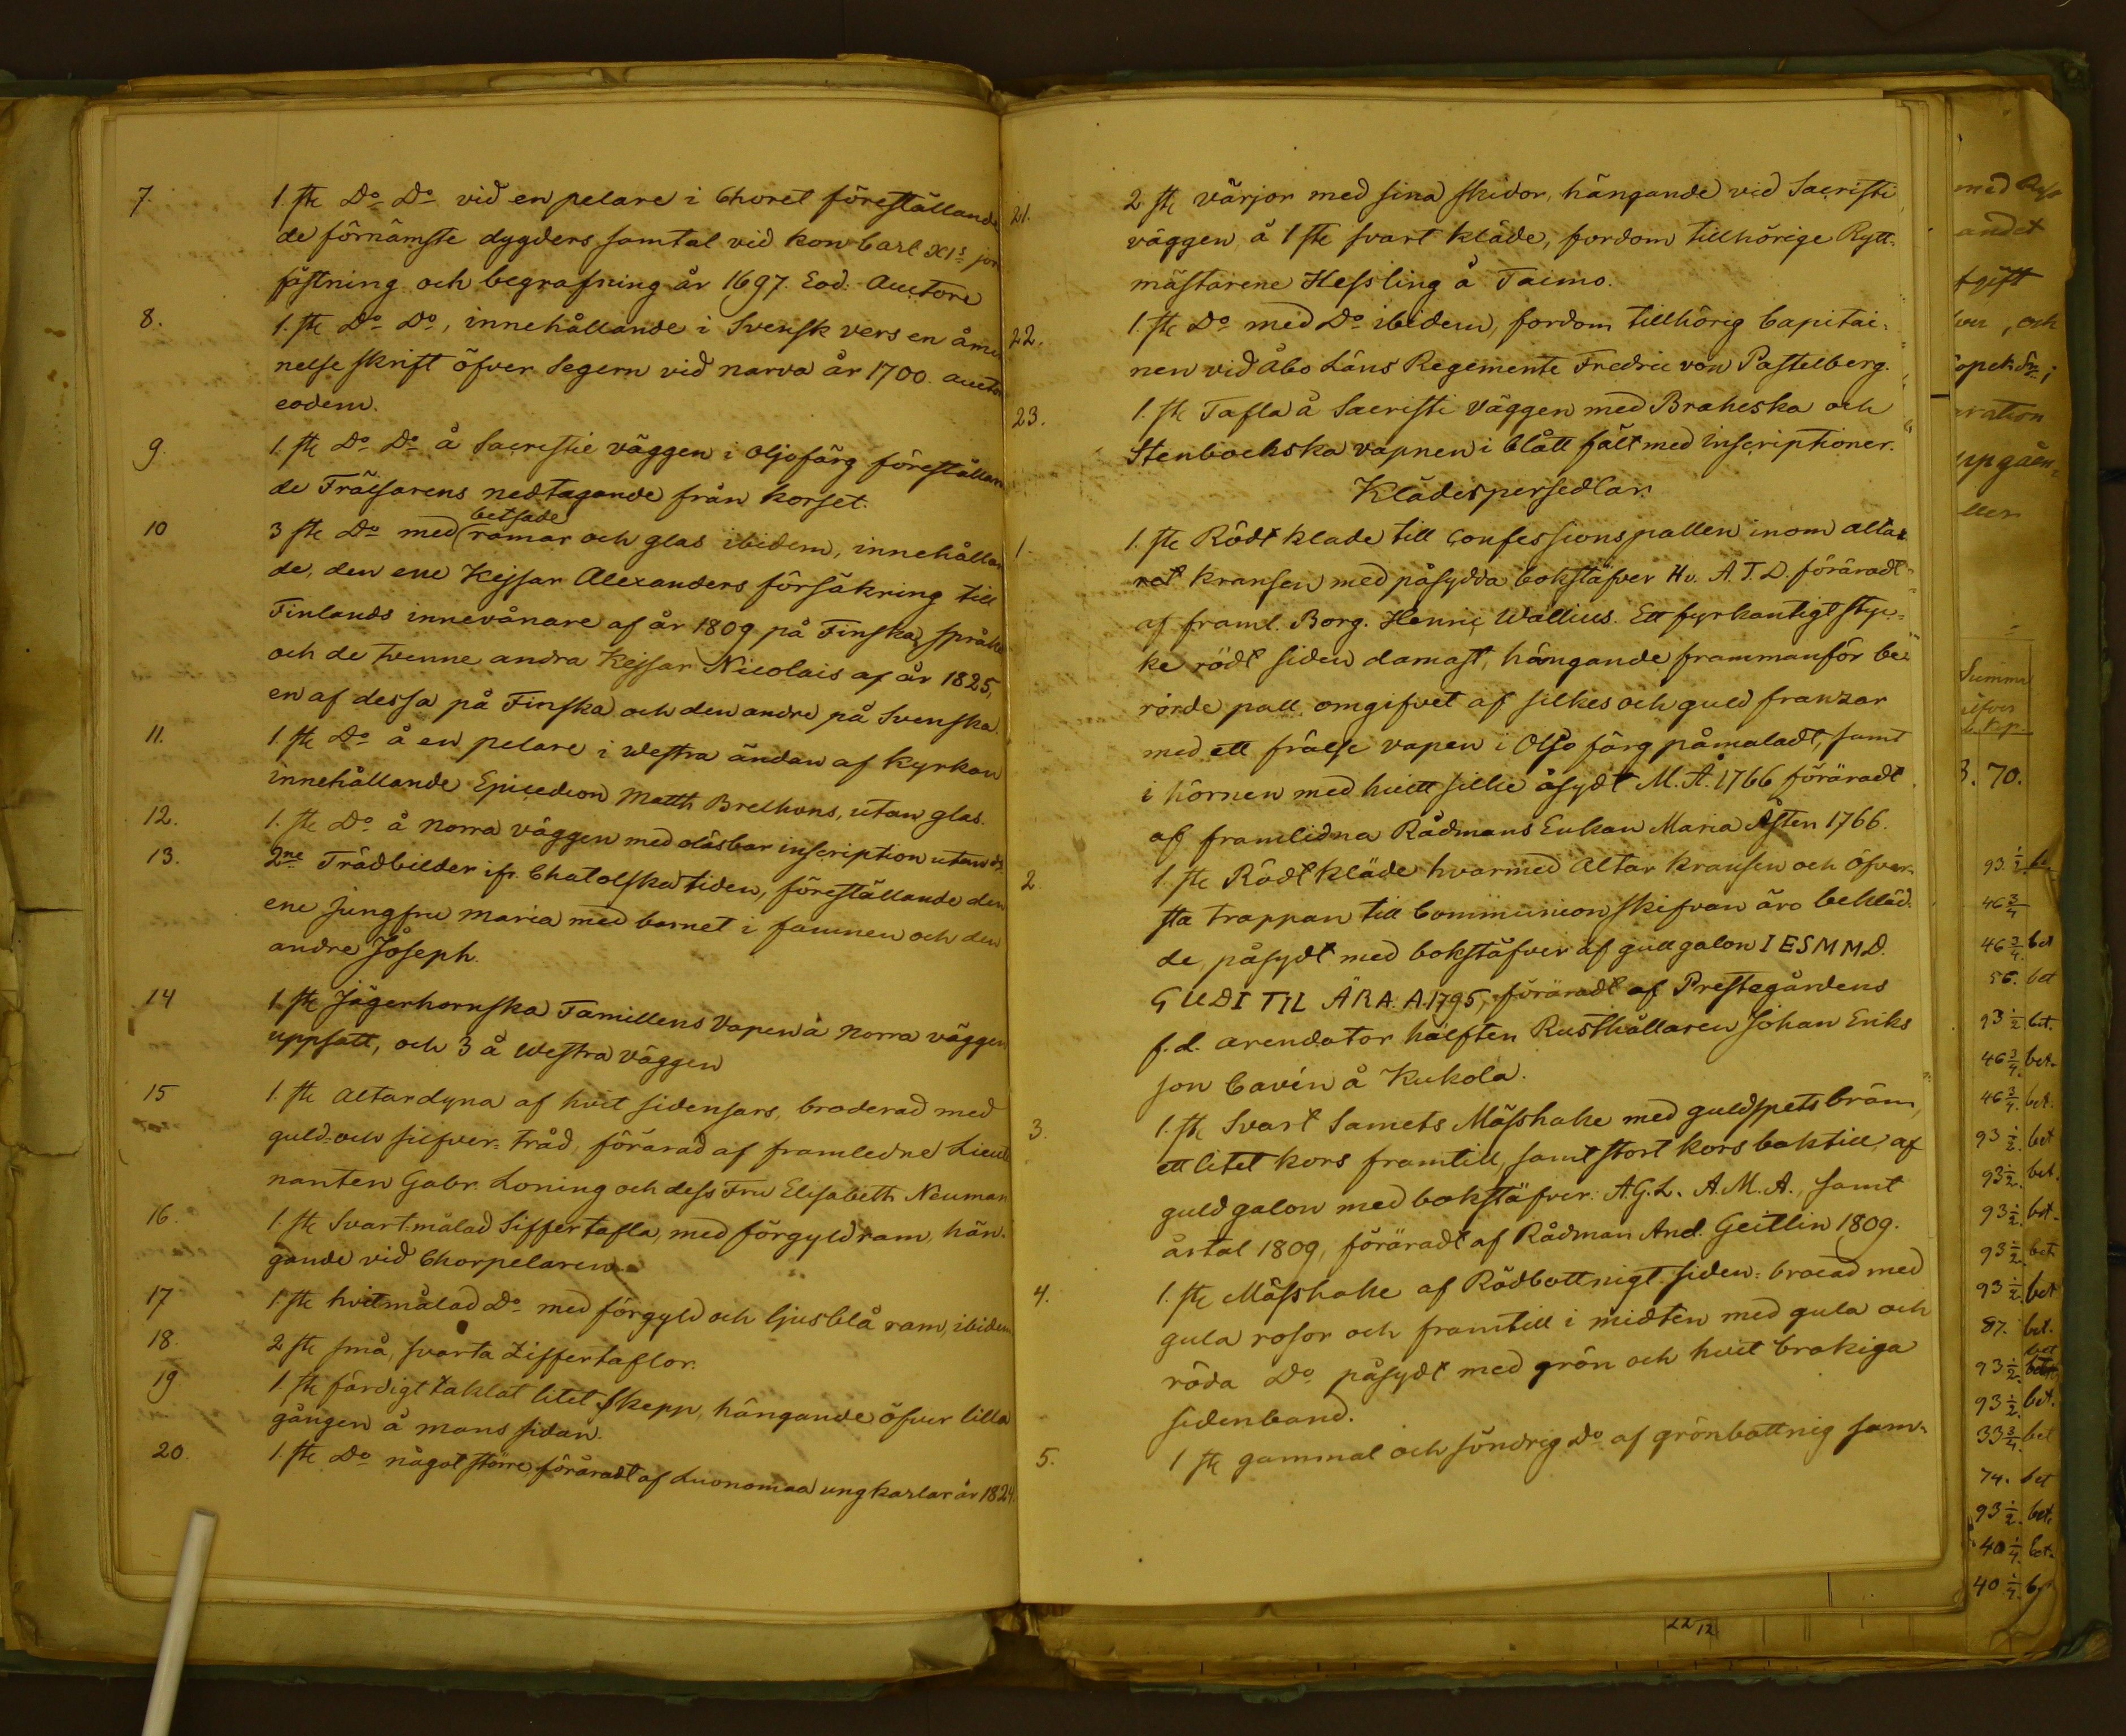 7. 1. st Do Do vid en pelare i Choret föreställande
de förnämste dygders samtal vid kon Carl XIs jor
fästning och begrafning år 1697. Eod. Auctore
8. 1. st Do Do, innehållande i Svensk vers en åmi
nelse skrift öfver Segern vid narva år 1700. auctor
eodem.
9. 1. st Do Do å Sacrestie väggen i Oljofärg föreställan
de Frälsarens nedtagande från korset.
10 3 st Do med (betsade ramar och glas ibidem, innehållan
de, den ene Kejsar Alexanders försäkring till
Finlands innevånare af år 1809 på Finska språket
och de tvenne andra Kejsar Nicolais af år 1825,
en af dessa på Finska och den andre på Svenska.
11. 1. st Do å en pelare i westra ändan af Kyrkan
innehållande Epicedion Matth Brelhons, utan glas.
12. 1. st Do å Norra väggen med oläsbar inscription utan
13. 2ne Trädbilder ifr. Chatolska tiden, föreställande den
ene jungfru Maria med barnet i famnen och den
andre Joseph.
14 1 st Jägerhornska Famillens Vapen å Norra väggen
uppsatt, och 3 å Westra väggen
15 1. st Altardyna af hvit sidensars, broderad med
guld- och silfver- tråd, förärad af framledne Lieute
nanten Gabr. Loning och dess Fru Elisabeth Neuman
16. 1. st Svartmålad Siffertafla, med förgyld ram, hän-
gande vid Chorpelaren.
17 1. st hvitmålad Do med förgyld och ljusblå ram, ibidem
18. 2 st små, svarta Ziffertaflor.
19 1. st färdigt taklat litet skepp, hängande öfver lilla
gången å mans sidan.
20. 1. st Do något större, föräradt af Luonomaa ungkarlar år 1824.
21. 2 st värjor med sina skidor, hängande vid Sacristi
väggen, å 1 st svart kläde, fordom tillhörige Rytt-
mästarene Hessling å Taimo.
22. 1. st Do med Do ibidem, fordom tillhörig Capitai-
nen vid Åbo Läns Regemente Fredric von Pastelberg.
23. 1. st Tafla å Sacristi Väggen med Braheska och
Stenbockska vapnen i blått fält med inscriptioner.
Klädespersedlar.
1. 1. st Rödt klade till Confessionspallen inom alta-
ret kransen med påsydda bokstäfver Hv. A. T. D. förärадt
af framl. Borg. Henric Wallius. Ett fyrkantigt styc-
ke rödt siden damast, hängande frammanför be-
rörde pall, omgifvet af silkes och guld franzar
med ett frälse vapen i Oljo färg påmaladt, samt
i hörnen med hvitt silke åsydt M. Å. 1766 förärадt
af framlidna Rådmans Enkan Maria Åsten 1766.
2. 1. st Rödt kläde hvarmed Altar kransen och Öfver-
sta trappan till Communion skifvan äro bekläd-
de, påsydt med bokstäfver af gull galon I E S M M D.
GUDI TIL ÄRA. A. 1795, förärадt af Prestegårdens
f. d. arendator hälften Rusthållaren Johan Eriks
son Cavén å Kukola.
3. 1. st Svart Samets Mässhake med guldspets bräm,
ett litet kors framtill, samt stort kors baktill, af
guld galon med bokstäfver: A. G. L. A. M. A., samt
årtal 1809, förärадt af Rådman And. Geitlin 1809.
4. 1. st Mässhake af Rödbottnigt siden-brocad med
gula rosor och framtill i midten med gula och
röda Do påsydt med grön och hvit brokiga
sidenband.
5. 1 st gammal och söndrig Do af grönbottnig sam-
andet
tgift
ver, och
ration
uppgåen-
ller
Summa
silfver
kop.
3. 70.
93 1/2
46 3/4
46 3/4. bet
56. bet
93 1/2 bet.
46 3/4. bet.
46 3/4. bet.
93 1/2. bet
93 1/2. bet.
93 1/2. bet.
93 1/2. bet
93 1/2. bet
87. bet.
93 1/2. bet
93 1/2. bet.
33 3/4. bet
74. bet
93 1/2. bet.
40 1/4. bet.
40 1/4.
22/12